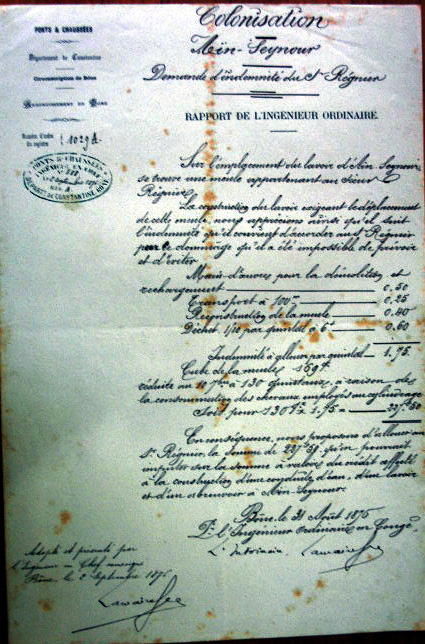 PONTS & CHAUSSÉES
Département de Constantine
Circonscription de Bône
ARRONDISSEMENT DE BONE
Numéro d'ordre du registre
1029 A
PONTS & CHAUSSÉES
INGÉNIEUR EN CHEF
DÉPART. DE CONSTANTINE
Colonisation
Aïn-Seynour
Demande d'indemnité du Sr Régnier
RAPPORT DE L'INGÉNIEUR ORDINAIRE.
Sur l'emplacement du lavoir d'Aïn-Seynour
se trouve une meule appartenant au sieur
Régnier.
La construction du lavoir exigeant le déplacement
de cette meule, nous apprécions ainsi qu'il suit
l'indemnité qu'il convient d'accorder au Sr Régnier
pour le dommage qu'il a été impossible de prévoir
et d'éviter
Main d'œuvre pour la démolition et
rechargement 0,50
Transport à 100m 0,25
Reconstruction de la meule 0,40
Déchet 1/10 par quintal à 6f 0,60
Indemnité à allouer par quintal 1,75
Cube de la meule 159
réduite au à 130 quintaux, à raison de
la consommation des chevaux employés au
Soit pour 130 1,75 = 227,50
En conséquence, nous proposons d'allouer au
Sr Régnier, la somme de qu'on pourrait
imputer sur la somme à valoir du crédit affecté
à la construction d'une conduite d'eau, d'un lavoir
et d'un abreuvoir à Aïn-Seynour.
Bône, le 31 Août 1876
Pr l'Ingénieur Ordinaire en Congé,
L'Intérimaire,
Adopté et présenté par
l'Ingénieur en Chef
Bône, le 2 Septembre 1876